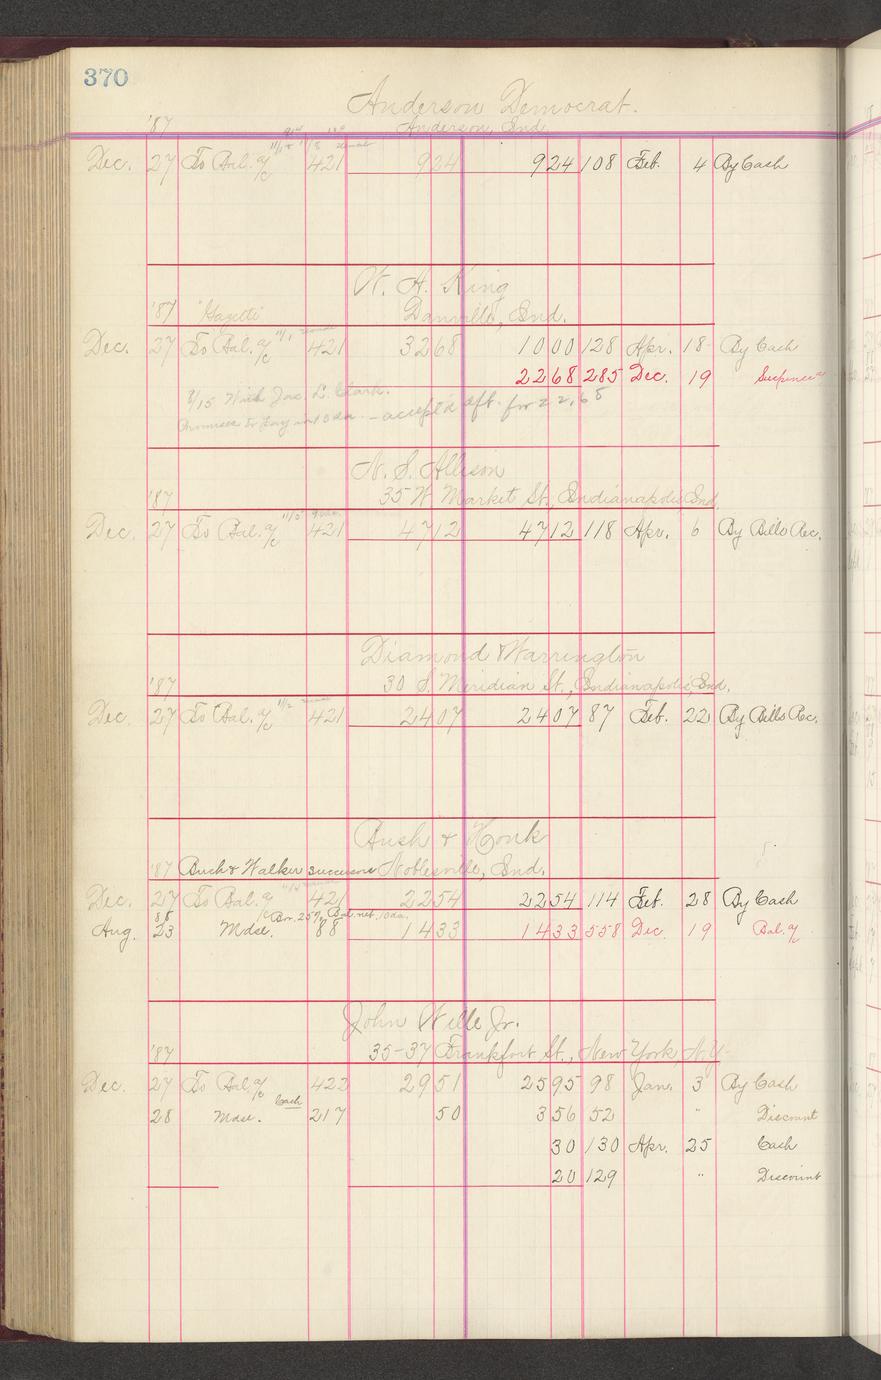 370
Anderson Democrat.
'87 Anderson, Ind.
Dec. 27 To Bal. a/c 421 924 924 108 Feb. 4 By Cash
W. A. King
'87 "Gazette" Danville, Ind.
Dec. 27 To Bal. a/c 421 3268 1000 128 Apr. 18 By Cash
2268 285 Dec. 19 Suspense a/c
8/15 With Jac. L. Clark.
Promises to pay in 10 da. – accept'd dft. for 22.68
N. S. Allison
'87 35 W. Market St., Indianapolis, Ind.
Dec. 27 To Bal. a/c 421 4712 4712 118 Apr. 6 By Bills Rec.
Diamond Warrington
'87 30 S. Meridian St., Indianapolis, Ind.
Dec. 27 To Bal. a/c 421 2407 2407 87 Feb. 22 By Bills Rec.
Bush & Honk
'87 Buch & Walker successors Noblesville, Ind.
Dec. 27 To Bal. a/c 421 2254 2254 114 Feb. 28 By Cash
88 Bal. net. 10 da.
Aug. 23 Mdse. 88 1433 1433 558 Dec 19 Bal. a/c
John Wille Jr.
'87 35-37 Frankfort St., New York, N.Y.
Dec. 27 To Bal. a/c 422 2951 2595 98 Jan. 3 By Cash
Cash
28 Mdse. 217 50 356 52 " Discount
30 130 Apr. 25 Cash
20 129 " Discount